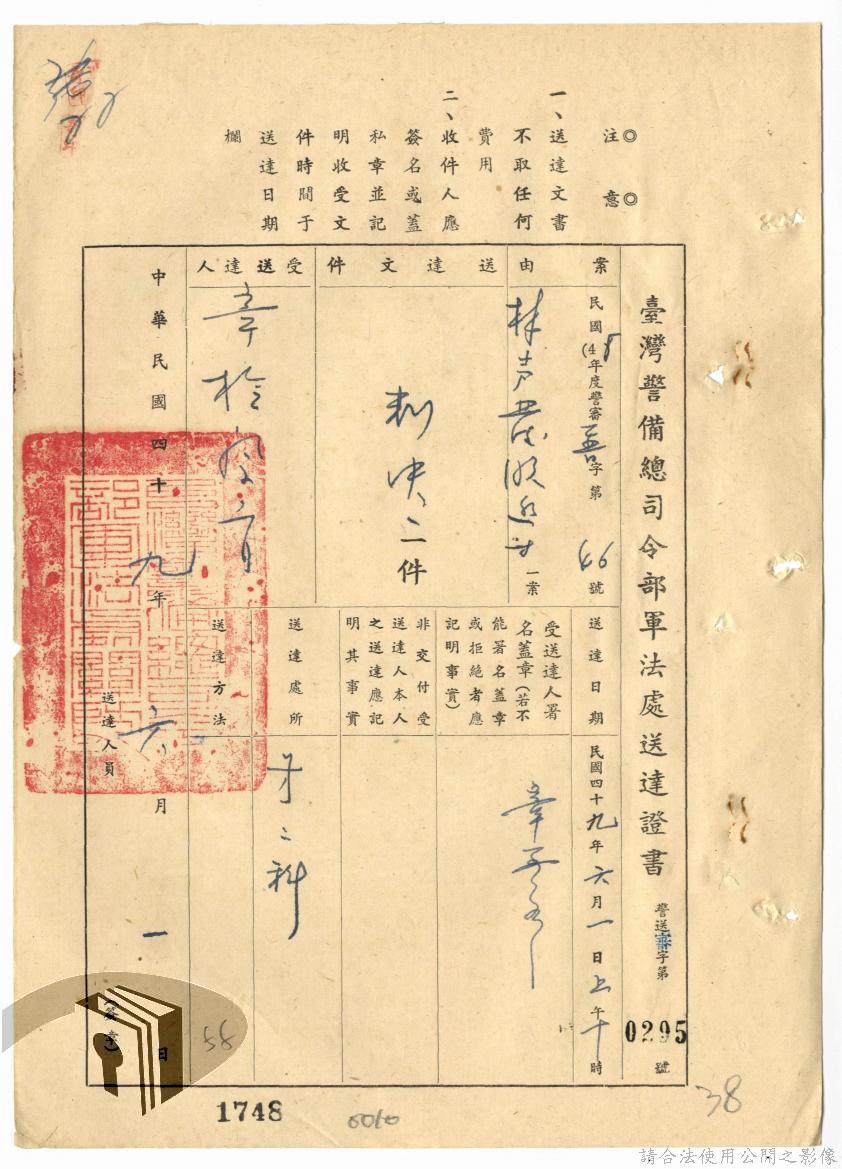 ◎注意◎
一、送達文書
不取任何
費用
二、收件人應
簽名或蓋
私章並記
明收受文
件時間于
送達日期
欄
臺灣警備總司令部軍法處送達證書
警送審字第
0295
號
案由
民國(48年度警審字第46號
一案
送達文件
判決二件
受送達人
送達日期
民國四十九年六月一日上午十時
受送達人署
名蓋章(若不
能署名蓋章
或拒絕者應
記明事實)
非交付受
送達人本人
之送達應記
明其事實
送達處所
第二科
送達方法
中華民國四十九年六月一日
送達人員
(簽章)
58
1748
0010
38
請合法使用公開之影像